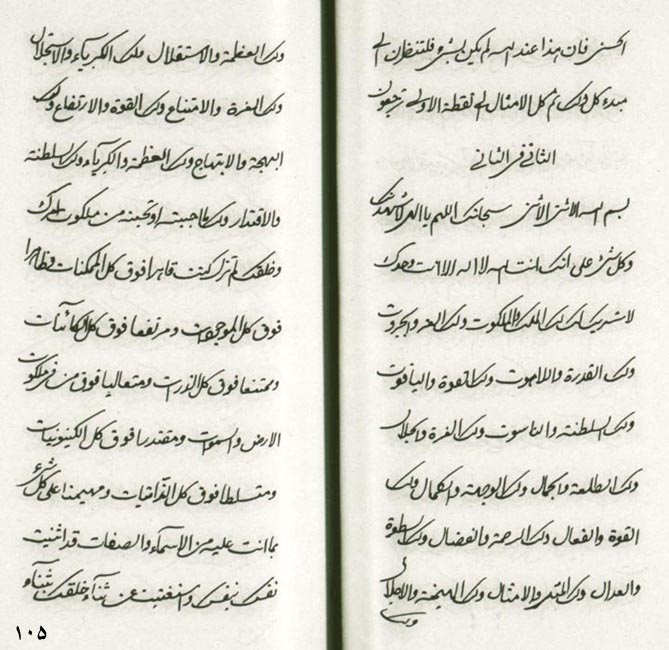 الحسنى فان هذا عند الله لم يكن بشيء فلتنظرن الى
مبدء كل ذلك ثم كل الامثال الى نقطة الاولى ترجعون
الثاني في الثاني
بسم الله الامنع الاقدس سبحانك اللهم يا الهي لاشهدنك
وكل شيء على انك انت الله لا اله الا انت وحدك
لا شريك لك لك الملك والملكوت ولك العز والجبروت
ولك القدرة واللاهوت ولك القوة والياقوت
ولك السلطنة والناسوت ولك العزة والجلال
ولك الطلعة والجمال ولك الوجهة والكمال ولك
القوة والفعال ولك الرحمة والفضال ولك السطوة
والعدال ولك المثل والامثال ولك الهيمنة والاجلال
ولك العظمة والاستقلال ولك الكبرياء والاستجلال
ولك العزة والامتناع ولك القوة والارتفاع ولك
البهجة والابتهاج ولك العظمة والكبرياء ولك السلطنة
والاقتدار ولك ما احببته او تحبنه من ملكوت امرك
وخلقك لم تزل كنت قاهرا فوق كل الممكنات وظاهرا
فوق كل الموجودات ومرتفعا فوق كل الكائنات
وممتنعا فوق كل الذرات ومتعاليا فوق من في ملكوت
الارض والسموات ومقتدرا فوق كل الكينونيات
ومتسلطا فوق كل الذاتيات ومهيمنا على كل شيء
بما انت عليه من الاسماء والصفات قد اثنيت
نفسك بنفسك واستغنيت عن ثناء خلقك بثناء
١٠٥